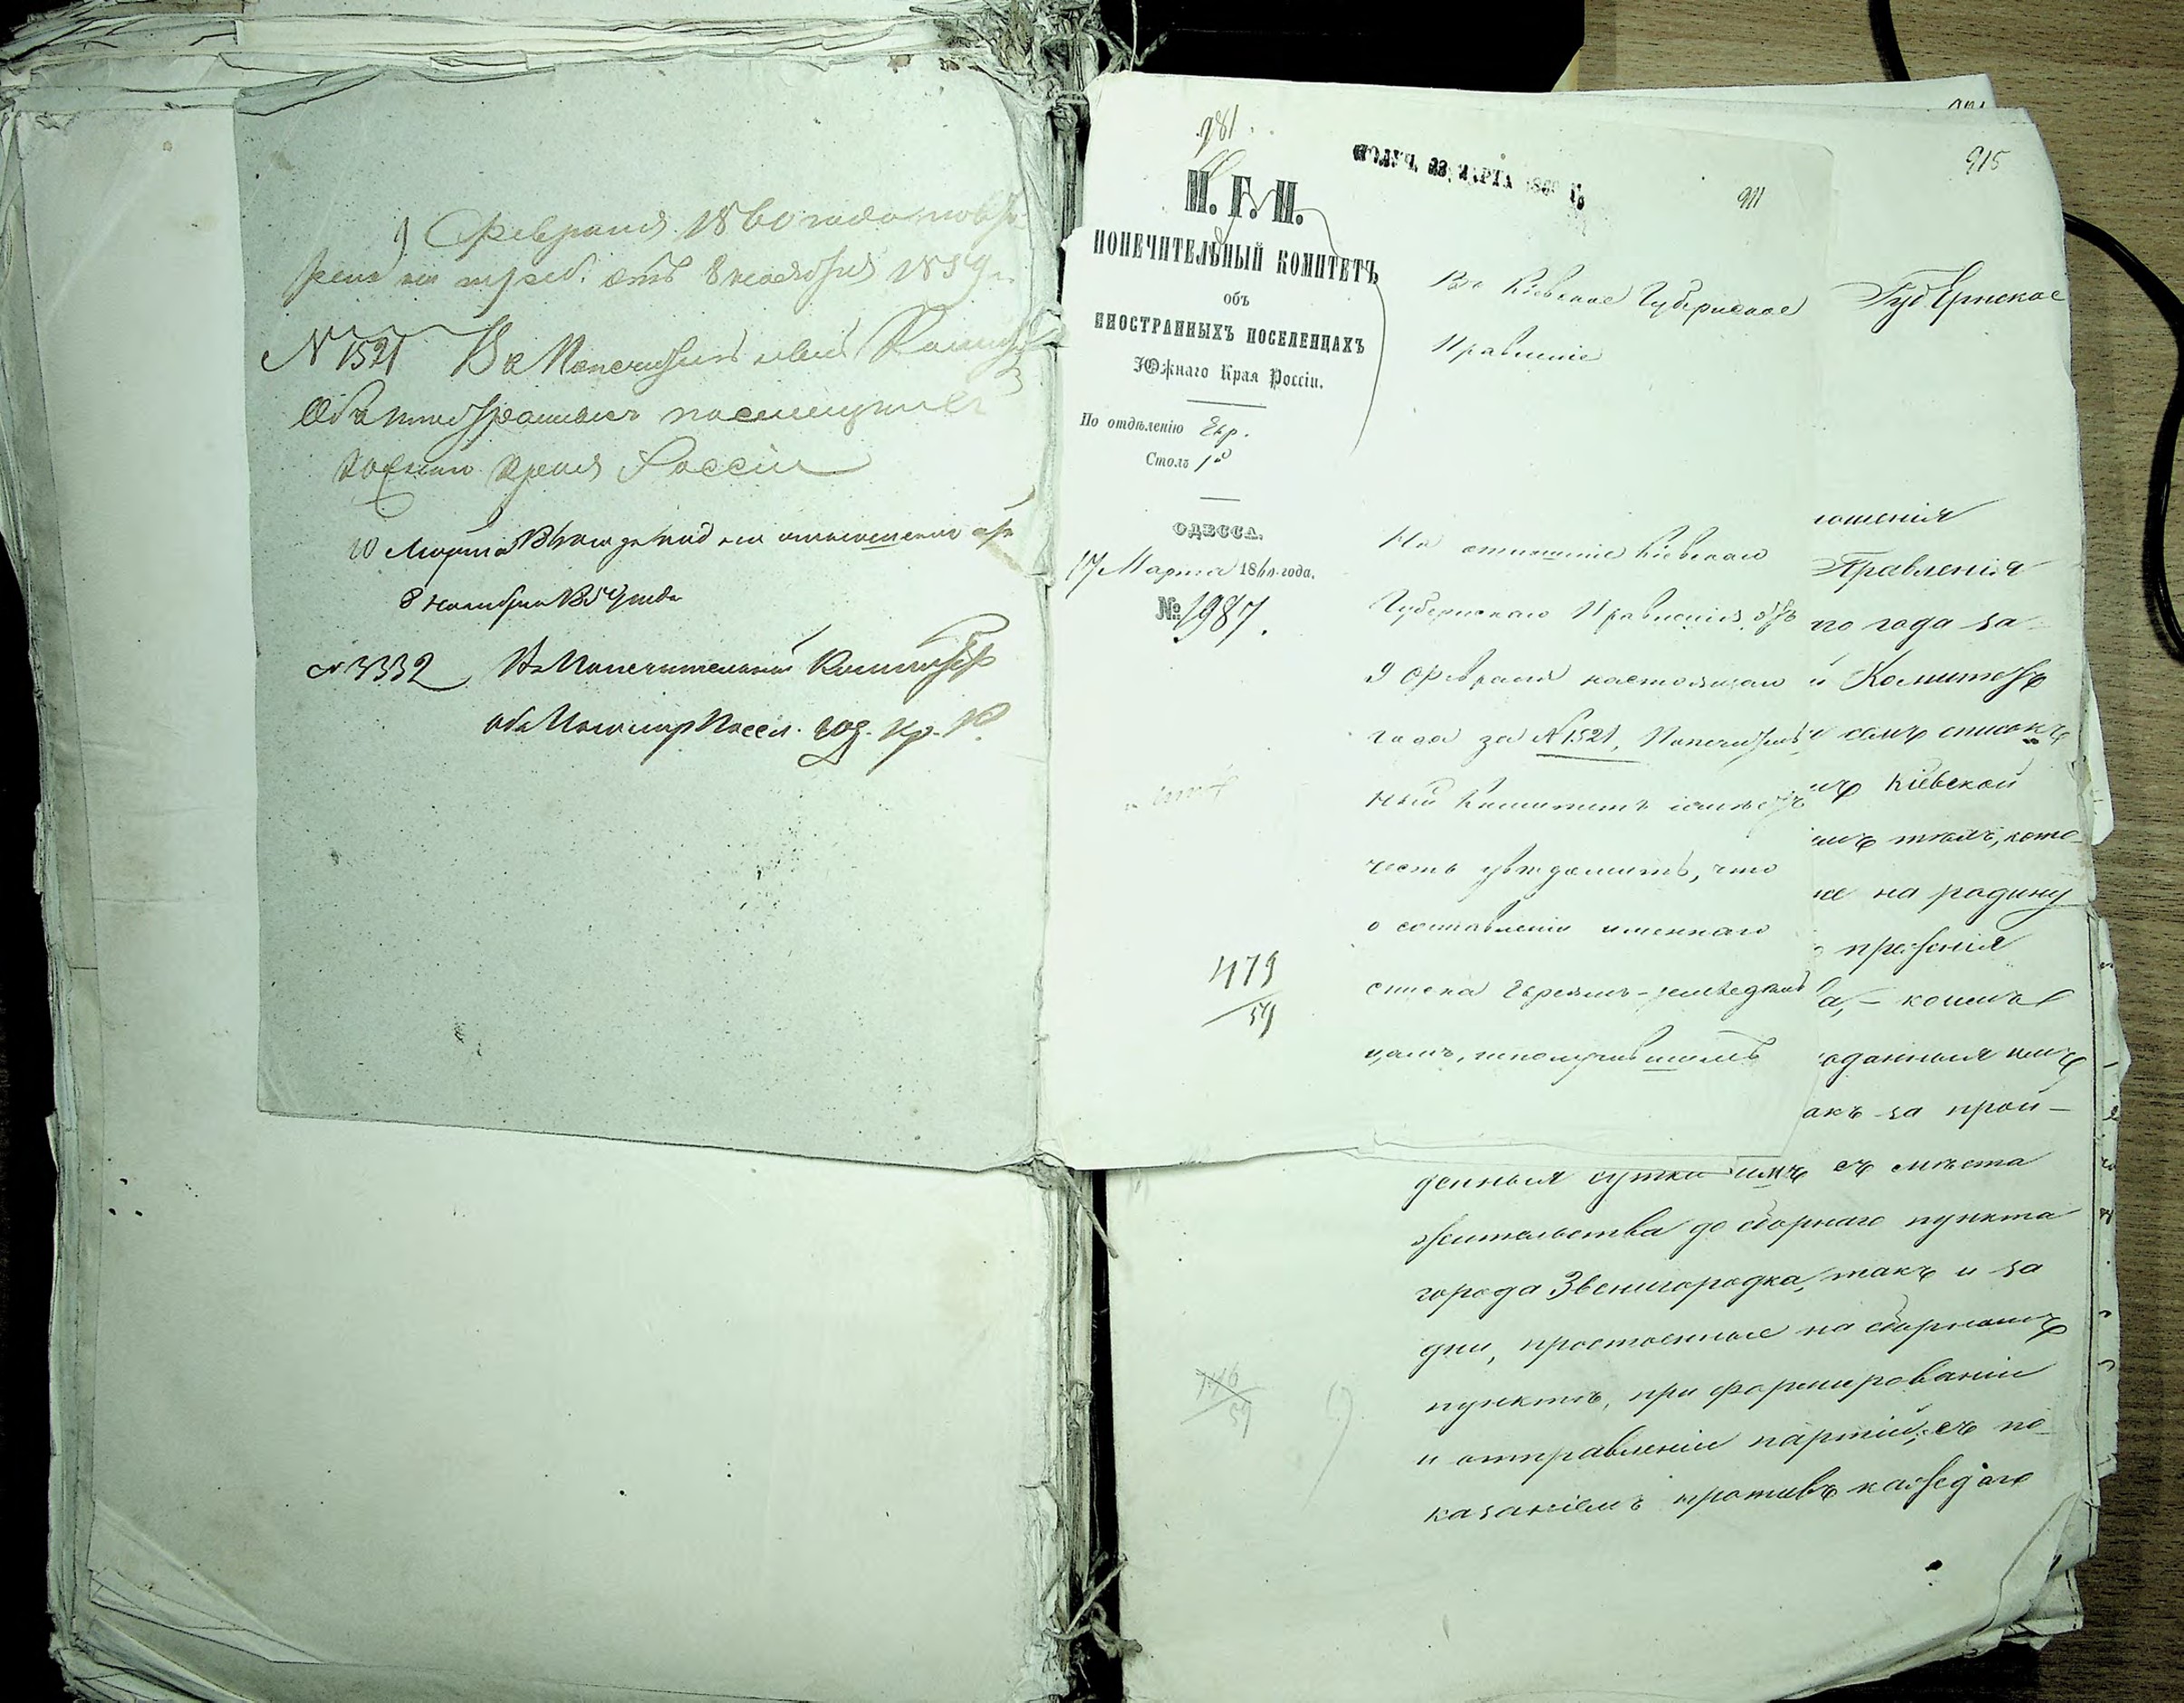 9 Февраля 1860 года повто-
рено на треб. отъ 8 ноября 1859 г.
№ 1521 Въ Попечительный Комит.
Объ иностранныхъ поселенцахъ
Южнаго Края Россіи
10 Марта 1860 года на отношеніе отъ
8 Ноября 1859 года
№ 3332 Въ Попечительный Комитетъ
объ Иностр Посел. Юж. Кр. Р.
981.
М. Г. И.
ПОПЕЧИТЕЛЬНЫЙ КОМИТЕТЪ
объ
ИНОСТРАННЫХЪ ПОСЕЛЕНЦАХЪ
Южнаго Края Россіи.
По отдѣленію Евр.
Столъ 1й
ОДЕССА.
17 Марта 1860 года.
№ 1987.
479
59
ПОЛУЧ. 23 МАРТА 1860 Г.
911
Въ Кіевское Губернское
Правленіе
На отношеніе Кіевскаго
Губернскаго Правленія отъ
9 Февраля настоящаго
года за № 1521, Попечитель
ный Комитетъ имѣетъ
честь увѣдомить, что
о составленіи именнаго
списка Евреямъ-земледѣль
цамъ, неполучившимъ
915
Губернское
ношенія
Правленія
го года за
й Комитетъ
семъ списокъ
Кіевской
тѣмъ, кото-
на родину
а, - коимъ
оданныя имъ
акъ за прой-
денныя сутки имъ съ мѣста
жительства до сборнаго пункта
города Звенигородка, такъ и за
дни, простоенные на сборномъ
пунктѣ, при формированіи
и отправленіи партій, съ по-
казаніемъ противъ каждаго
746
59